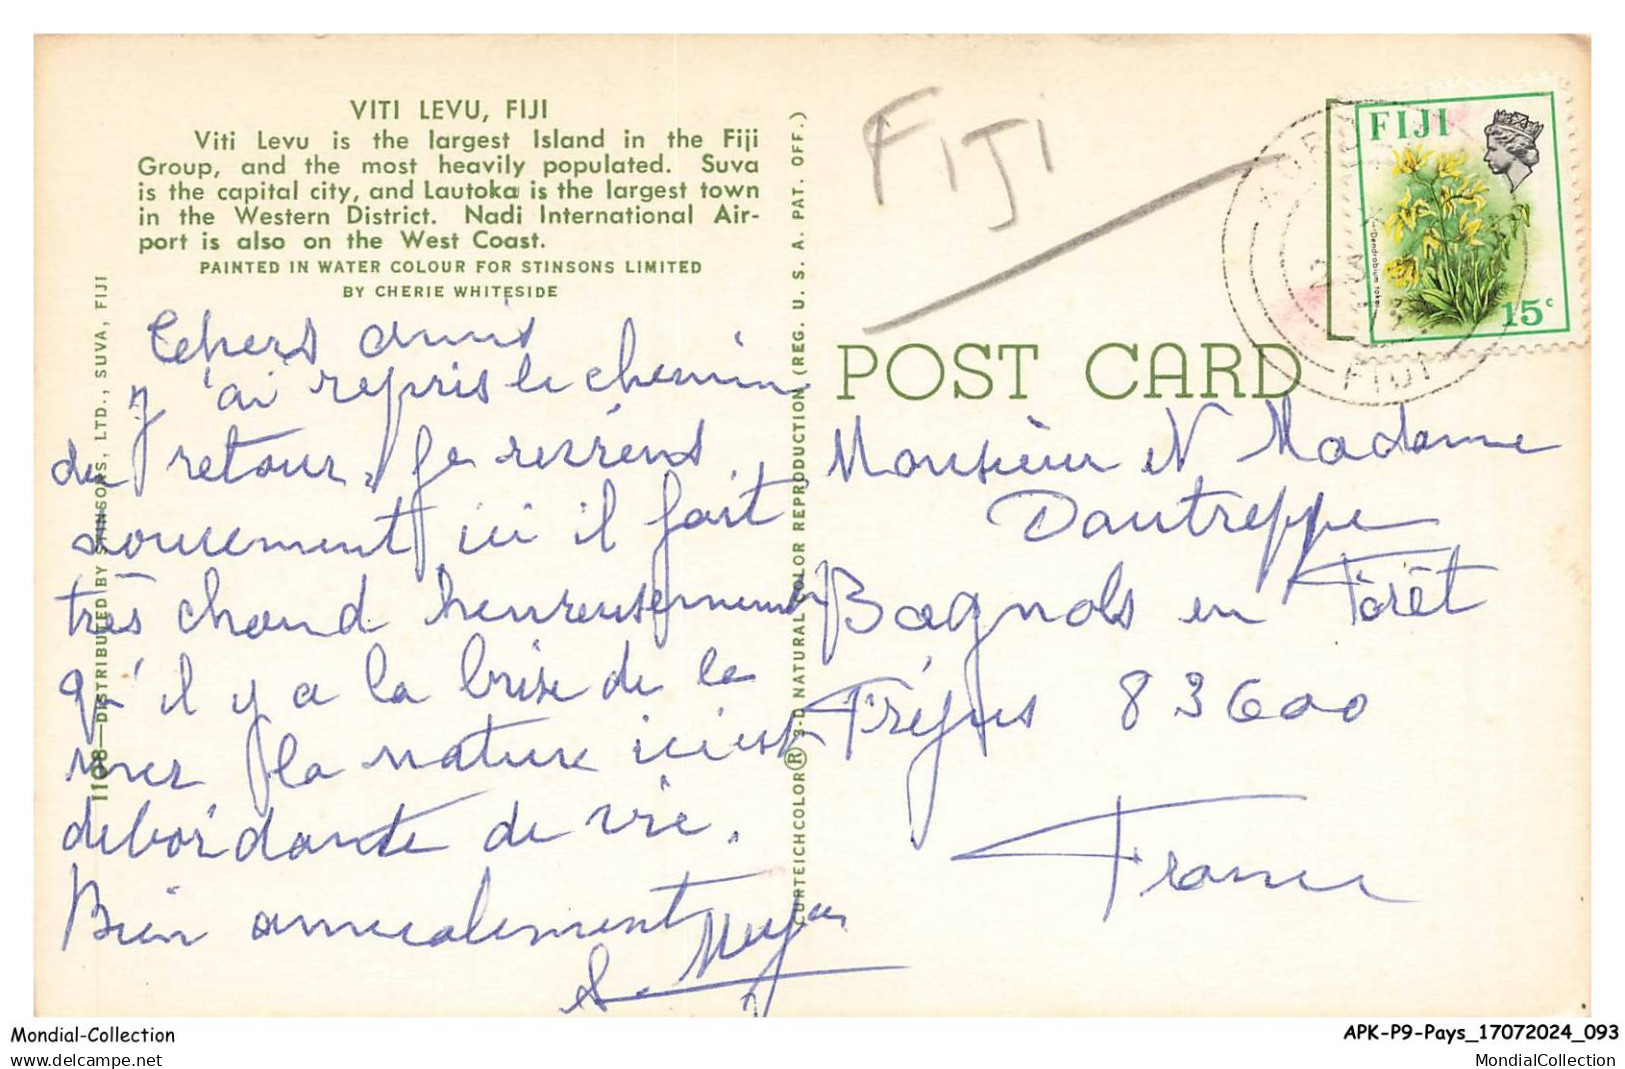 VITI LEVU, FIJI
Viti Levu is the largest Island in the Fiji
Group, and the most heavily populated. Suva
is the capital city, and Lautoka is the largest town
in the Western District. Nadi International Air-
port is also on the West Coast.
PAINTED IN WATER COLOUR FOR STINSONS LIMITED
BY CHERIE WHITESIDE
chers amis
J'ai repris le chemin
du retour, je reviens
doucement ici il fait
très chaud heureusement
qu'il y a la brise de la
mer la nature ici est
débordante de vie.
Bien amicalement
1108—DISTRIBUTED BY STINSONS, LTD., SUVA, FIJI
CURTEICHCOLOR® 3-D NATURAL COLOR REPRODUCTION (REG. U. S. A. PAT. OFF.)
FIJI
FIJI
Dendrobium
15c
FIJI
POST CARD
Monsieur et Madame
Dautreppe
Bagnols en Forêt
Fréjus 83600
France
Mondial-Collection
www.delcampe.net
APK-P9-Pays_17072024_093
MondialCollection